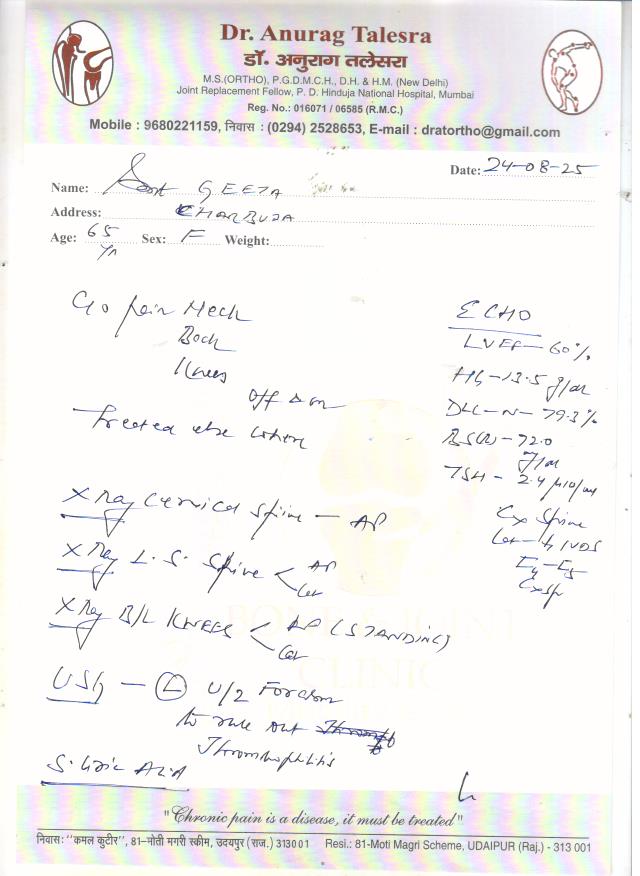 Dr. Anurag Talesra
डॉ. अनुराग तलेसरा
M.S.(ORTHO), P.G.D.M.C.H., D.H. & H.M. (New Delhi)
Joint Replacement Fellow, P. D. Hinduja National Hospital, Mumbai
Reg. No.: 016071 / 06585 (R.M.C.)
Mobile : 9680221159, निवास : (0294) 2528653, E-mail : dratortho@gmail.com
Date: 24-08-25
Name: GEETA
Address:
Age: 65 Sex: F Weight:
yr
C/o pain Neck
Back
Knees
off & on
Treated else where
ECHO
LVEF - 60%
Hb - 13.5 g/
DLC - N - 79.3%
72.0
TSH - 2.4
Cx Spine
Lat - IVDS
X Ray Cervical Spine - AP
X Ray L. S. Spine < AP
Lat
X Ray B/L KNEES < AP (STANDING)
Lat
USG - (L) U/2 Forearm
to rule out
Thrombophlebitis
BONE & JOINT
CLINIC
S. Uric Acid
"Chronic pain is a disease, it must be treated"
निवास: "कमल कुटीर", 81-मोती मगरी स्कीम, उदयपुर (राज.) 313001 Resi.: 81-Moti Magri Scheme, UDAIPUR (Raj.) - 313 001